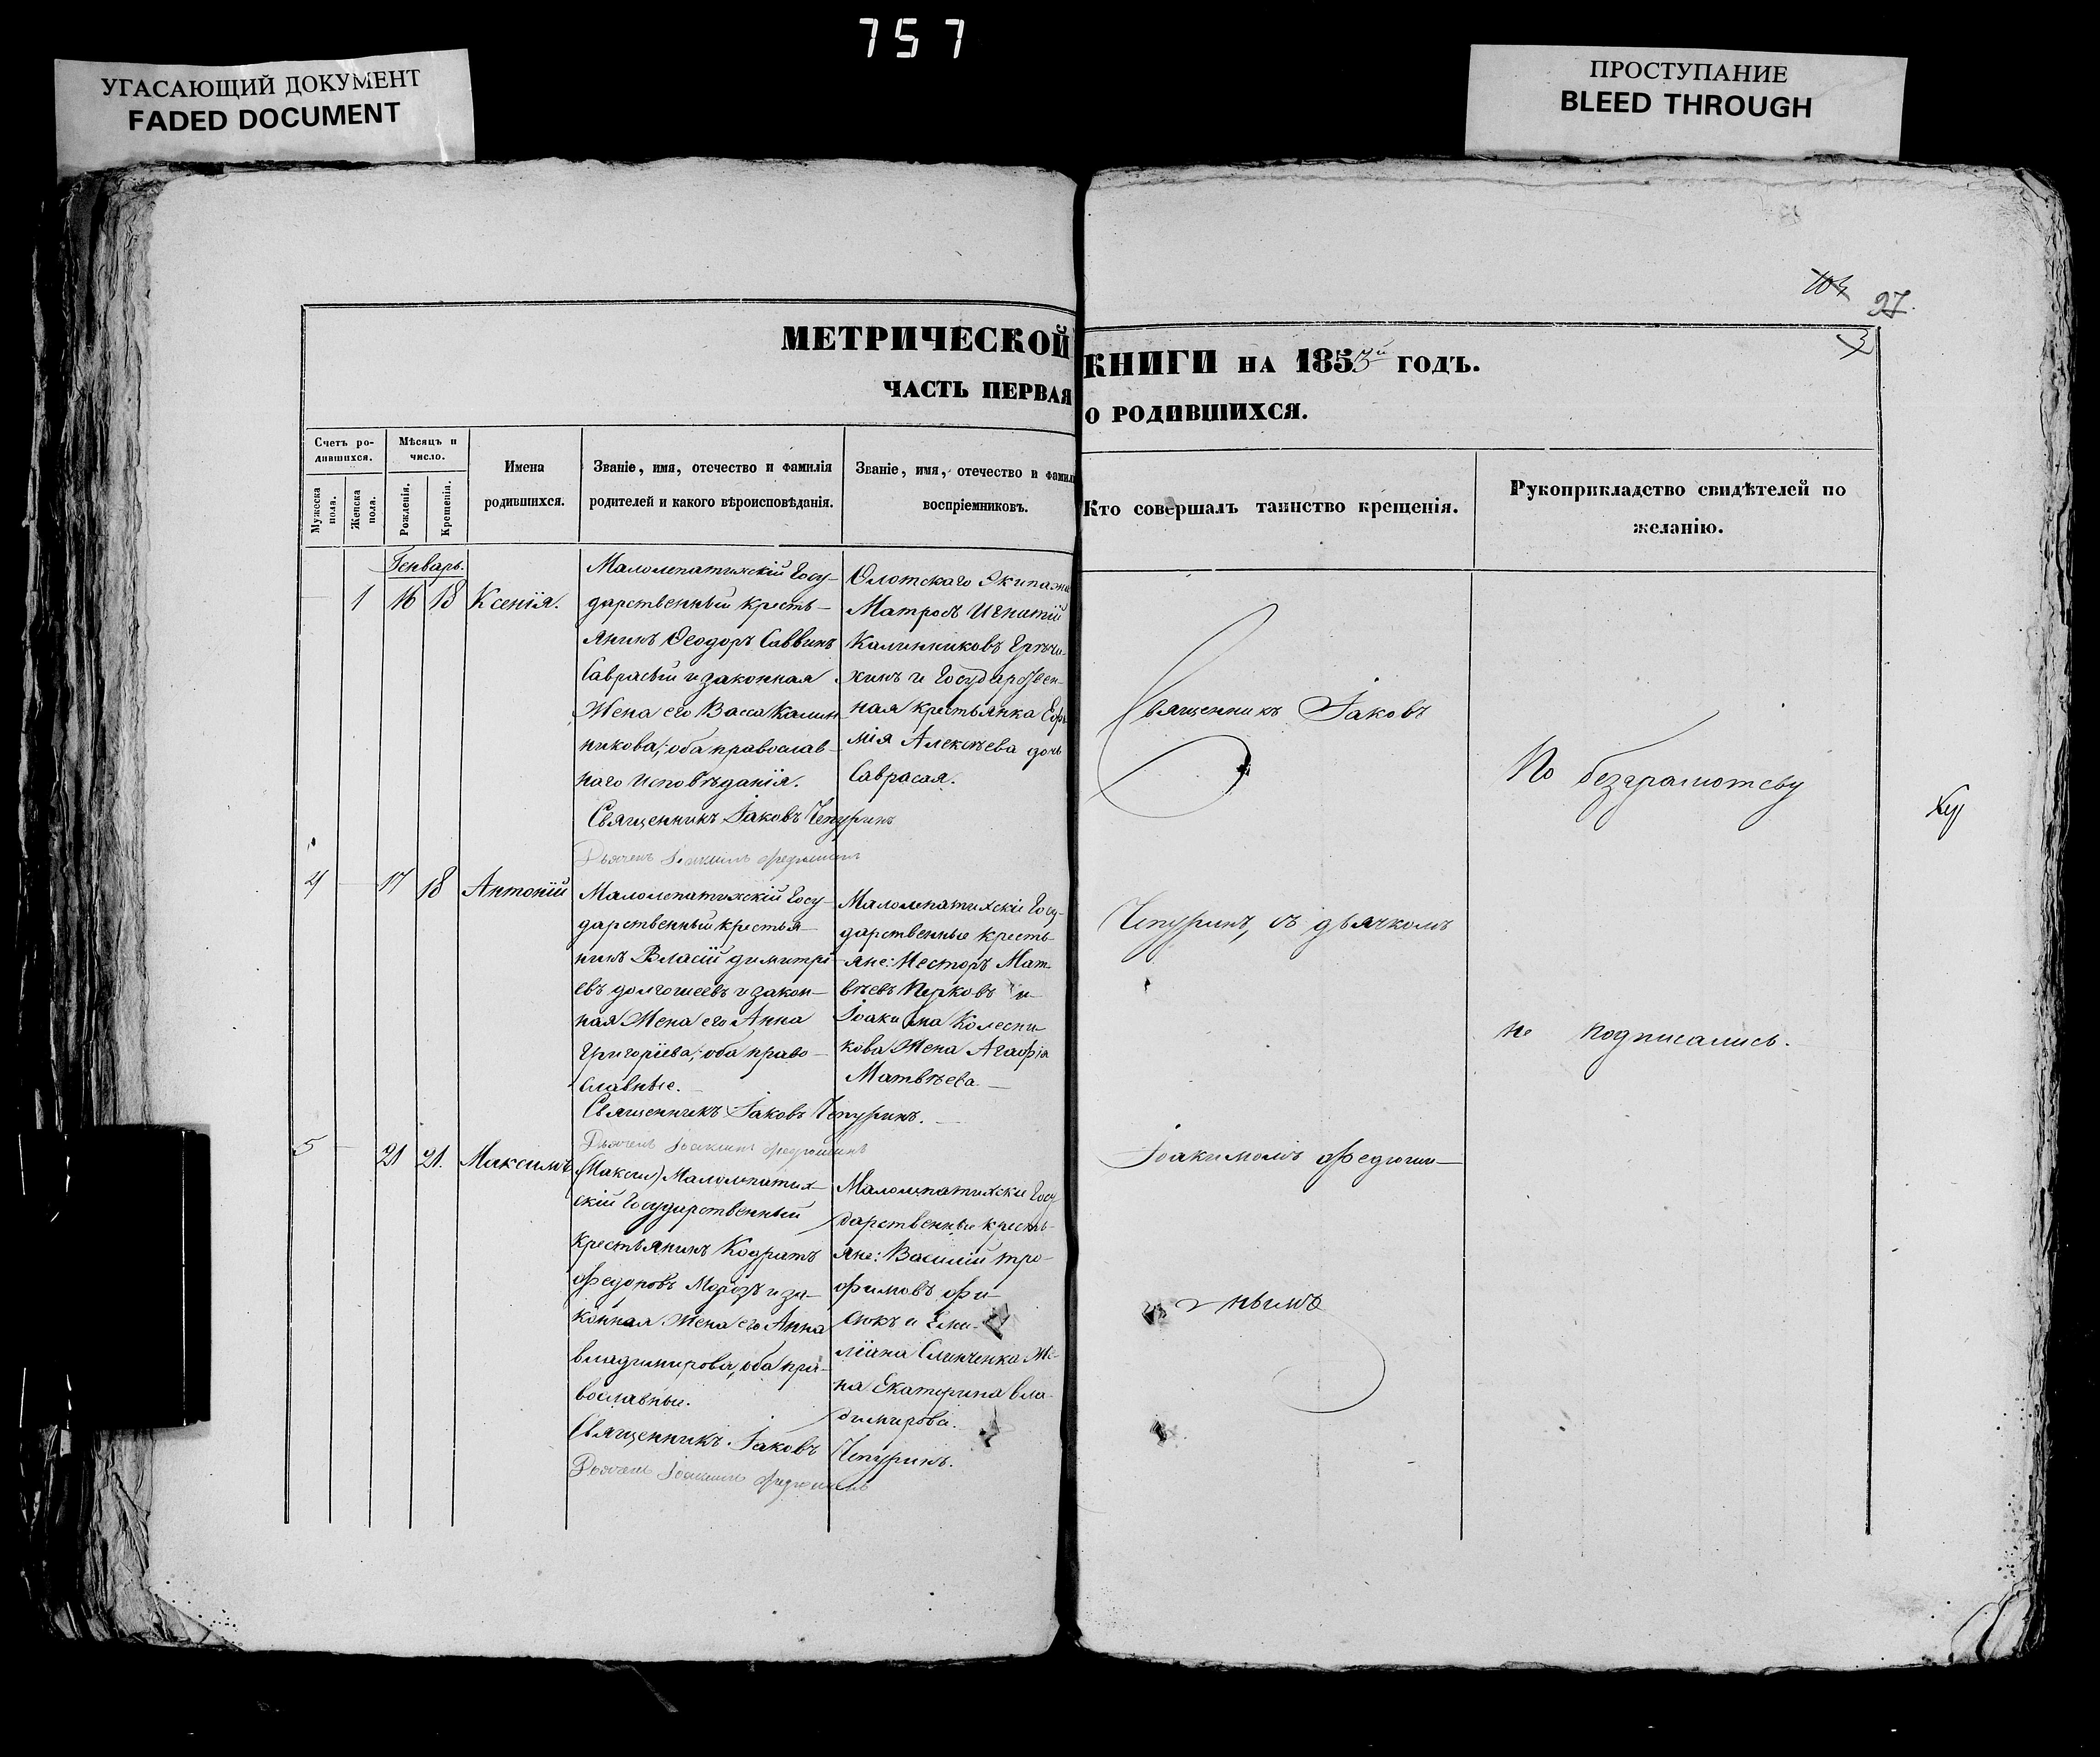 757
УГАСАЮЩИЙ ДОКУМЕНТ
FADED DOCUMENT
ПРОСТУПАНИЕ
BLEED THROUGH
27.
3
МЕТРИЧЕСКОЙ КНИГИ НА 1853й ГОДЪ.
ЧАСТЬ ПЕРВАЯ О РОДИВШИХСЯ.
Счетъ ро-
дившихся.
Мужеска пола.
Женска пола.
Мѣсяцъ и
число.
Рожденія.
Крещенія.
Имена
родившихся.
Званіе, имя, отечество и фамилія
родителей и какого вѣроисповѣданія.
Званіе, имя, отечество и фамилі
воспріемниковъ.
Кто совершалъ таинство крещенія.
Рукоприкладство свидѣтелей по
желанію.
Генварь.
1 16 18 Ксенія.
Малолепатихскій Госу-
дарственный кресть-
янинъ Ѳеодоръ Саввинъ
Саврасый и законная
Жена его Васса Калин
никова, оба православ-
наго исповѣданія.
Священникъ Іаковъ Чепуринъ
Дьячекъ Іоакимъ Федюшинъ
Флотскаго Экипажа
Матрозъ Игнатій
Калинниковъ
и Государствен-
ная крестьянка Еф
мія Алексѣева дочь
Саврасая.
4 17 18 Антоній
Малолепатихскій Госу-
дарственный крестья-
нинъ Власій димитрі
евъ долгошеевъ и закон-
ная Жена его Анна
Григоріева, оба право-
славные.
Священникъ Іаковъ Чепуринъ.
Дьячекъ Іоакимъ Федюшинъ
Малолепатихскіе Госу-
дарственные кресть-
яне: Несторъ Мат-
вѣевъ и
Іоакима Колесни-
кова Жена Агафія
Матвѣева.
5 21 21. Максимъ
(Максим) Малолепатих-
скій Государственный
крестьянинъ Кодратъ
Федоровъ Морозъ и за-
конная Жена его Анна
владимирова, оба пра-
вославные.
Священникъ Іаковъ Чепуринъ.
Дьячекъ Іоакимъ Федюшинъ
Малолепатихские Госу
дарственные кресть-
яне: Василій тро-
фимовъ фи-
сюкъ и Еми-
ліана Слинченка Же-
на Екатерина вла-
димирова.
Священникъ Іаковъ
Чепуринъ, съ дьячкомъ
Іоакимомъ Федюши-
нымъ
По безграмотсву
не подписались.